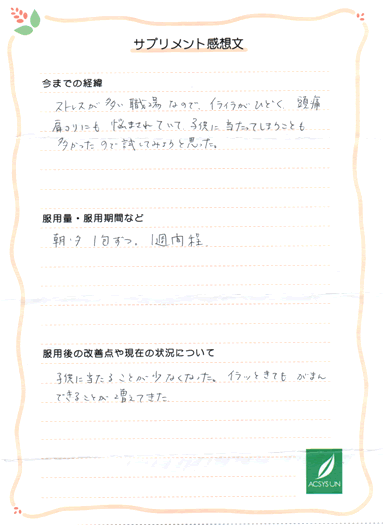 サプリメント感想文
今までの経緯
ストレスが多い職場なので、イライラがひどく、頭痛
肩コリにも悩まされていて、子供に当たってしまうことも
多かったので試してみようと思った。
服用量・服用期間など
朝・夕 1包ずつ、1週間程、
服用後の改善点や現在の状況について
子供に当たることが少なくなった。イラッときてもがまん
できることが増えてきた
ACSYSUN